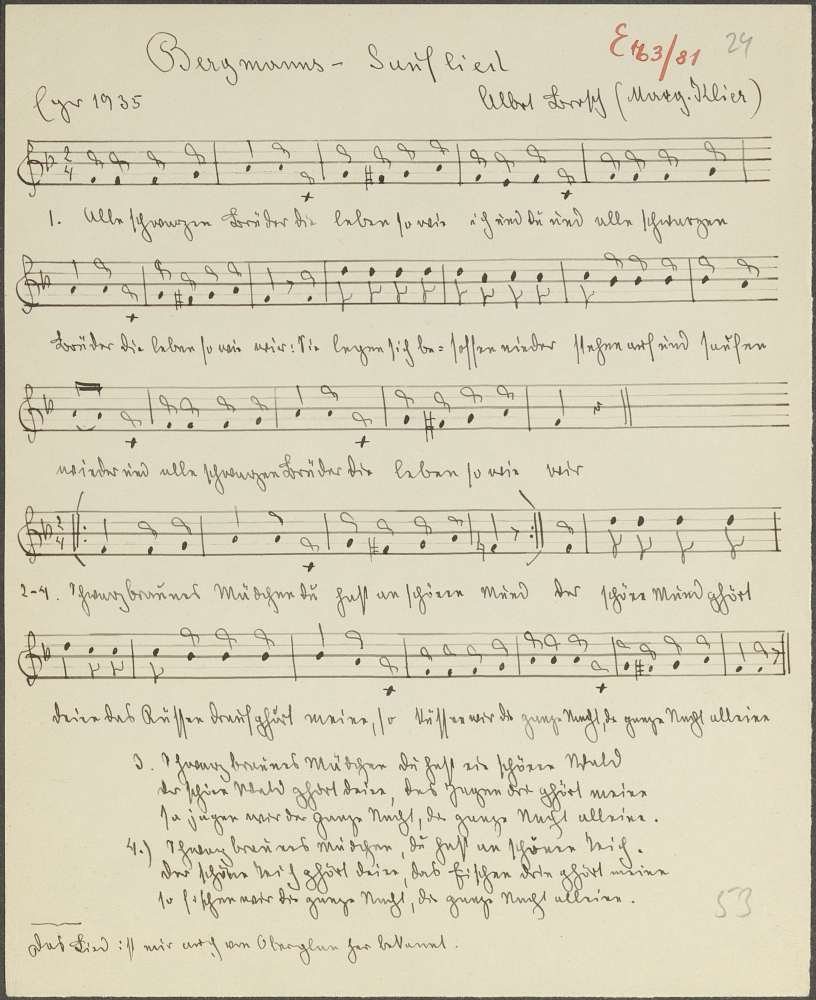 Bergmanns - Sauflied
E 463/81 24
Eger 1935
Albert Brosch (Marg. Klier)
1. Alle schwarzen Brüder die leben so wie ich und du und alle schwarzen
Brüder die leben so wie wir: Sie legen sich be= soffen nieder stehen auf und saufen
wieder und alle schwarzen Brüder die leben so wie wir
2-4. Schwarzbraunes Mädchen du hast an schönen Mund der schöne Mund ghört
deine das Küssen drauf ghört meine, so küssen wir die ganze Nacht, die ganze Nacht alleine
3. Schwarzbraunes Mädchen du hast ein schönen Wald
der schöne Wald ghört deine, das Jagen drin ghört meine
so jagen wir die ganze Nacht, die ganze Nacht alleine.
4.) Schwarzbraunes Mädchen, du hast an schönen Teich.
der schöne Teich ghört deine, das Fischen drin ghört meine
so fischen wir die ganze Nacht, die ganze Nacht alleine.
53
Das Lied ist mir auch von Oberglan her bekannt.